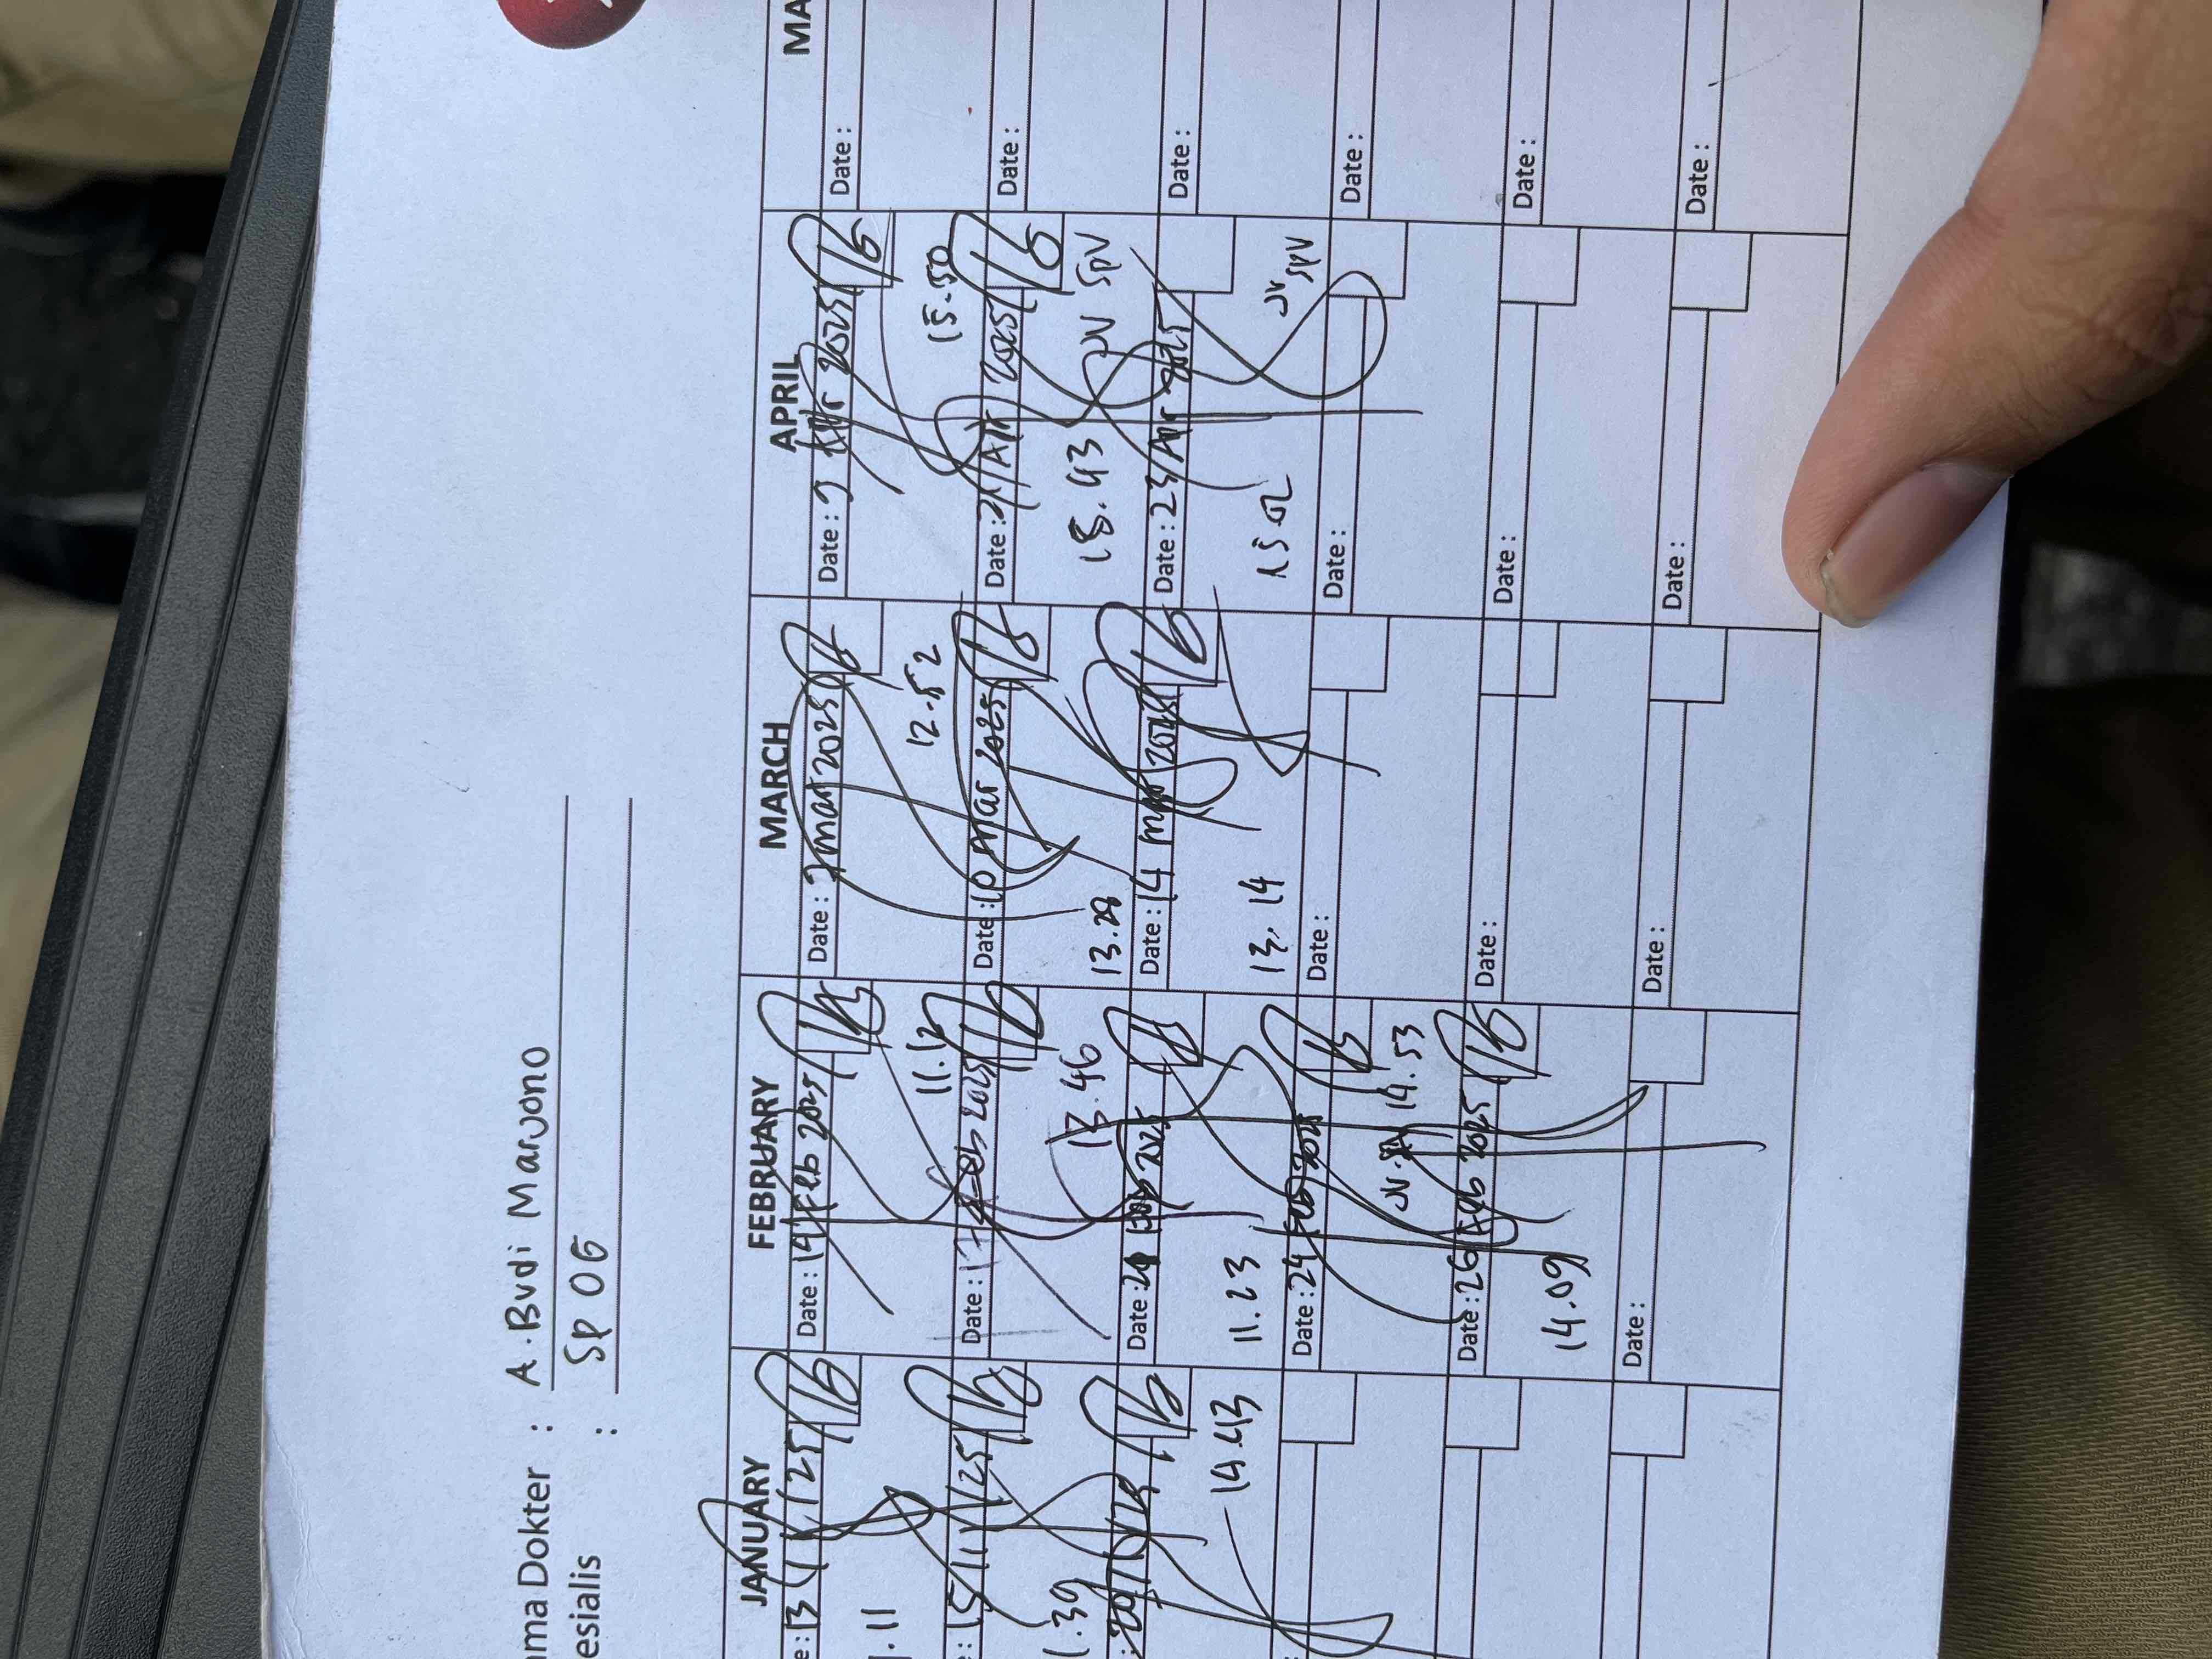 ama Dokter : A. Budi Maryono
esialis : Sp OG
JANUARY
e : 13 / 1 / 25
.11
e : 15 / 1 / 25
1.39
14.43
FEBRUARY
Date : 14 Feb 2025
11.12
Date : 17 Feb 2025
13.46
Date : 2025
11.23
Date : 24 Feb 2025
14.53
Date : 26 Feb 2025
14.09
Date :
MARCH
Date : 7 mar 2025
12.52
Date : 10 mar 2025
13.28
Date : 14 mar 2025
13.14
Date :
Date :
Date :
APRIL
Date : Apr 2025
15.50
Date : Apr 2025
18.43 Spv
Date : 23 Apr 2025
15.02 Spv
Date :
Date :
Date :
MA
Date :
Date :
Date :
Date :
Date :
Date :